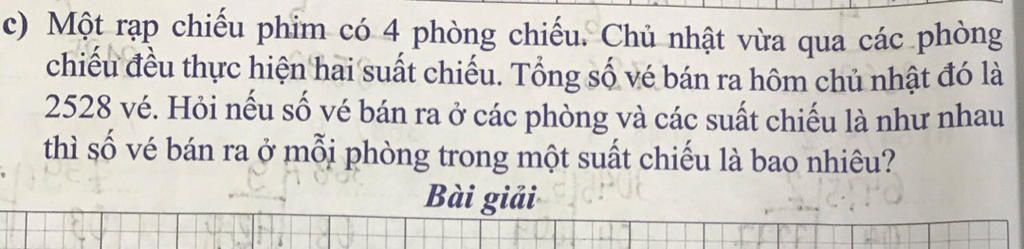 c) Một rạp chiếu phim có 4 phòng chiếu. Chủ nhật vừa qua các phòng
chiếu đều thực hiện hai suất chiếu. Tổng số vé bán ra hôm chủ nhật đó là
2528 vé. Hỏi nếu số vé bán ra ở các phòng và các suất chiếu là như nhau
thì số vé bán ra ở mỗi phòng trong một suất chiếu là bao nhiêu?
Bài giải